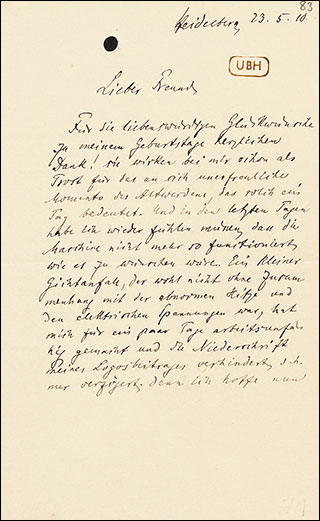 83
Heidelberg 23. 5. 10.
UBH
Lieber Freund,
Für die liebenswürdigen Glückwünsche
zu meinem Geburtstage herzlichen
Dank! sie wirken bei mir schon als
Trost für das an sich unerfreuliche
Momento des Altwerdens, das solch ein
Tag bedeutet. Und in den letzten Tagen
habe ich wieder fühlen müssen, dass die
Maschine nicht mehr so funktioniert,
wie es zu wünschen wäre. Ein kleiner
Gichtanfall, der wohl nicht ohne Zusam
menhang mit der abnormen Hitze und
den elektrischen Spannungen war, hat
mich für ein paar Tage arbeitsunfä
hig gemacht und die Niederschrift
meines Logosbeitrages verhindert, d. h.
nur verzögert. Denn ich hoffe nun